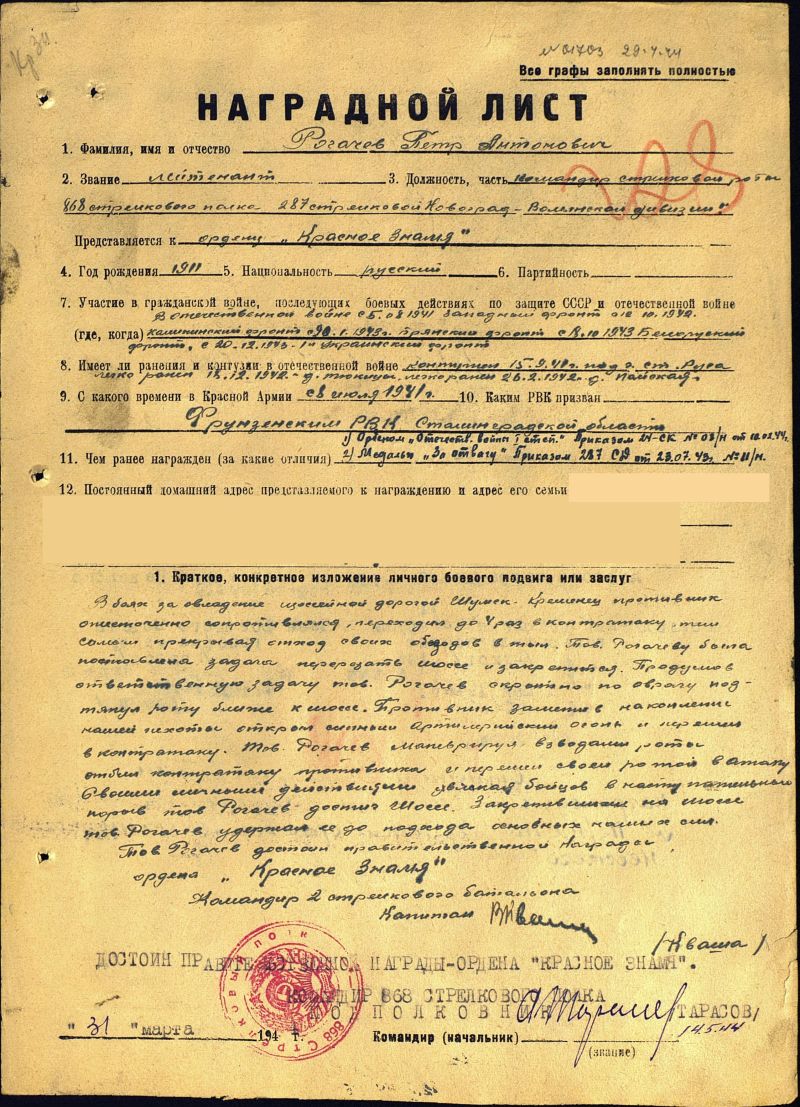 Кр Зн.
№ 01703 29.4.44
Все графы заполнять полностью
НАГРАДНОЙ ЛИСТ
1. Фамилия, имя и отчество Рогачев Петр Антонович
2. Звание лейтенант 3. Должность, часть командир стрелковой роты
868 стрелкового полка 287 стрелковой Новоград-Волынской дивизии.
Представляется к ордену „Красное Знамя"
4. Год рождения 1911 5. Национальность русский 6. Партийность
7. Участие в гражданской войне, последующих боевых действиях по защите СССР и отечественной войне
В отечественной войне с 5.08 1941 Западный фронт с 10.1942.
(где, когда) Калининский фронт с 20.1.1943г. Брянский фронт с 18.10 1943 Белоруский
фронт, с 20.12.1943. 1й Украинский фронт
8. Имеет ли ранения и контузии в отечественной войне контужен 15.9.41г. под г. ст. Руса
легко ранен 15.12.1942 д. легко ранен 26.2.1942 д.
9. С какого времени в Красной Армии с 8 июля 1941г. 10. Каким РВК призван
Фрунзенским РВК Сталинградской области
1) Орденом „Отечеств. война I степ." Приказом 24-СК № 03/н от 10.02.44г.
11. Чем ранее награжден (за какие отличия) 2) Медаль „За отвагу" Приказом 287 СД от 23.07.43г. № 11/н.
12. Постоянный домашний адрес представляемого к награждению и адрес его семьи
1. Краткое, конкретное изложение личного боевого подвига или заслуг
В боях за овладение шоссейной дорогой Шумск-Кременец противник
ожесточенно сопротивлялся, переходил до 4 раз в контратаку, тем
самым прекрывая отход своих обозов в тыл. Тов. Рогачеву была
поставлена задача перерезать шоссе и закрепится. Продумав
ответственную задачу тов. Рогачев скрытно по оврагу под-
тянул роту ближе к шоссе. Противник заметив накопление
нашей пехоты открыл сильный Артилерийский огонь и перешел
в контратаку. Тов. Рогачев маневрируя взводами роты
отбил контратаку противника и перешел своей ротой в атаку
Своими личными действиями увлекая бойцов в наступательный
порыв тов Рогачев достиг шоссе. Закрепившись на шоссе
тов. Рогачев удержал ее до подхода основных наших сил.
Тов Рогачев достоин правительственной Награды,
ордена „Красное Знамя"
Командир 2 стрелкового батальона
Капитан
/Кваша/
ДОСТОИН ПРАВИТЕЛЬСТВЕННОЙ НАГРАДЫ-ОРДЕНА "КРАСНОЕ ЗНАМЯ".
КОМАНДИР 868 СТРЕЛКОВОГО ПОЛКА
ПОДПОЛКОВНИК /ТАРАСОВ/
"31" марта 194 г. Командир (начальник)
14.5.44
(звание)
868 СТРЕЛКОВЫЙ ПОЛК